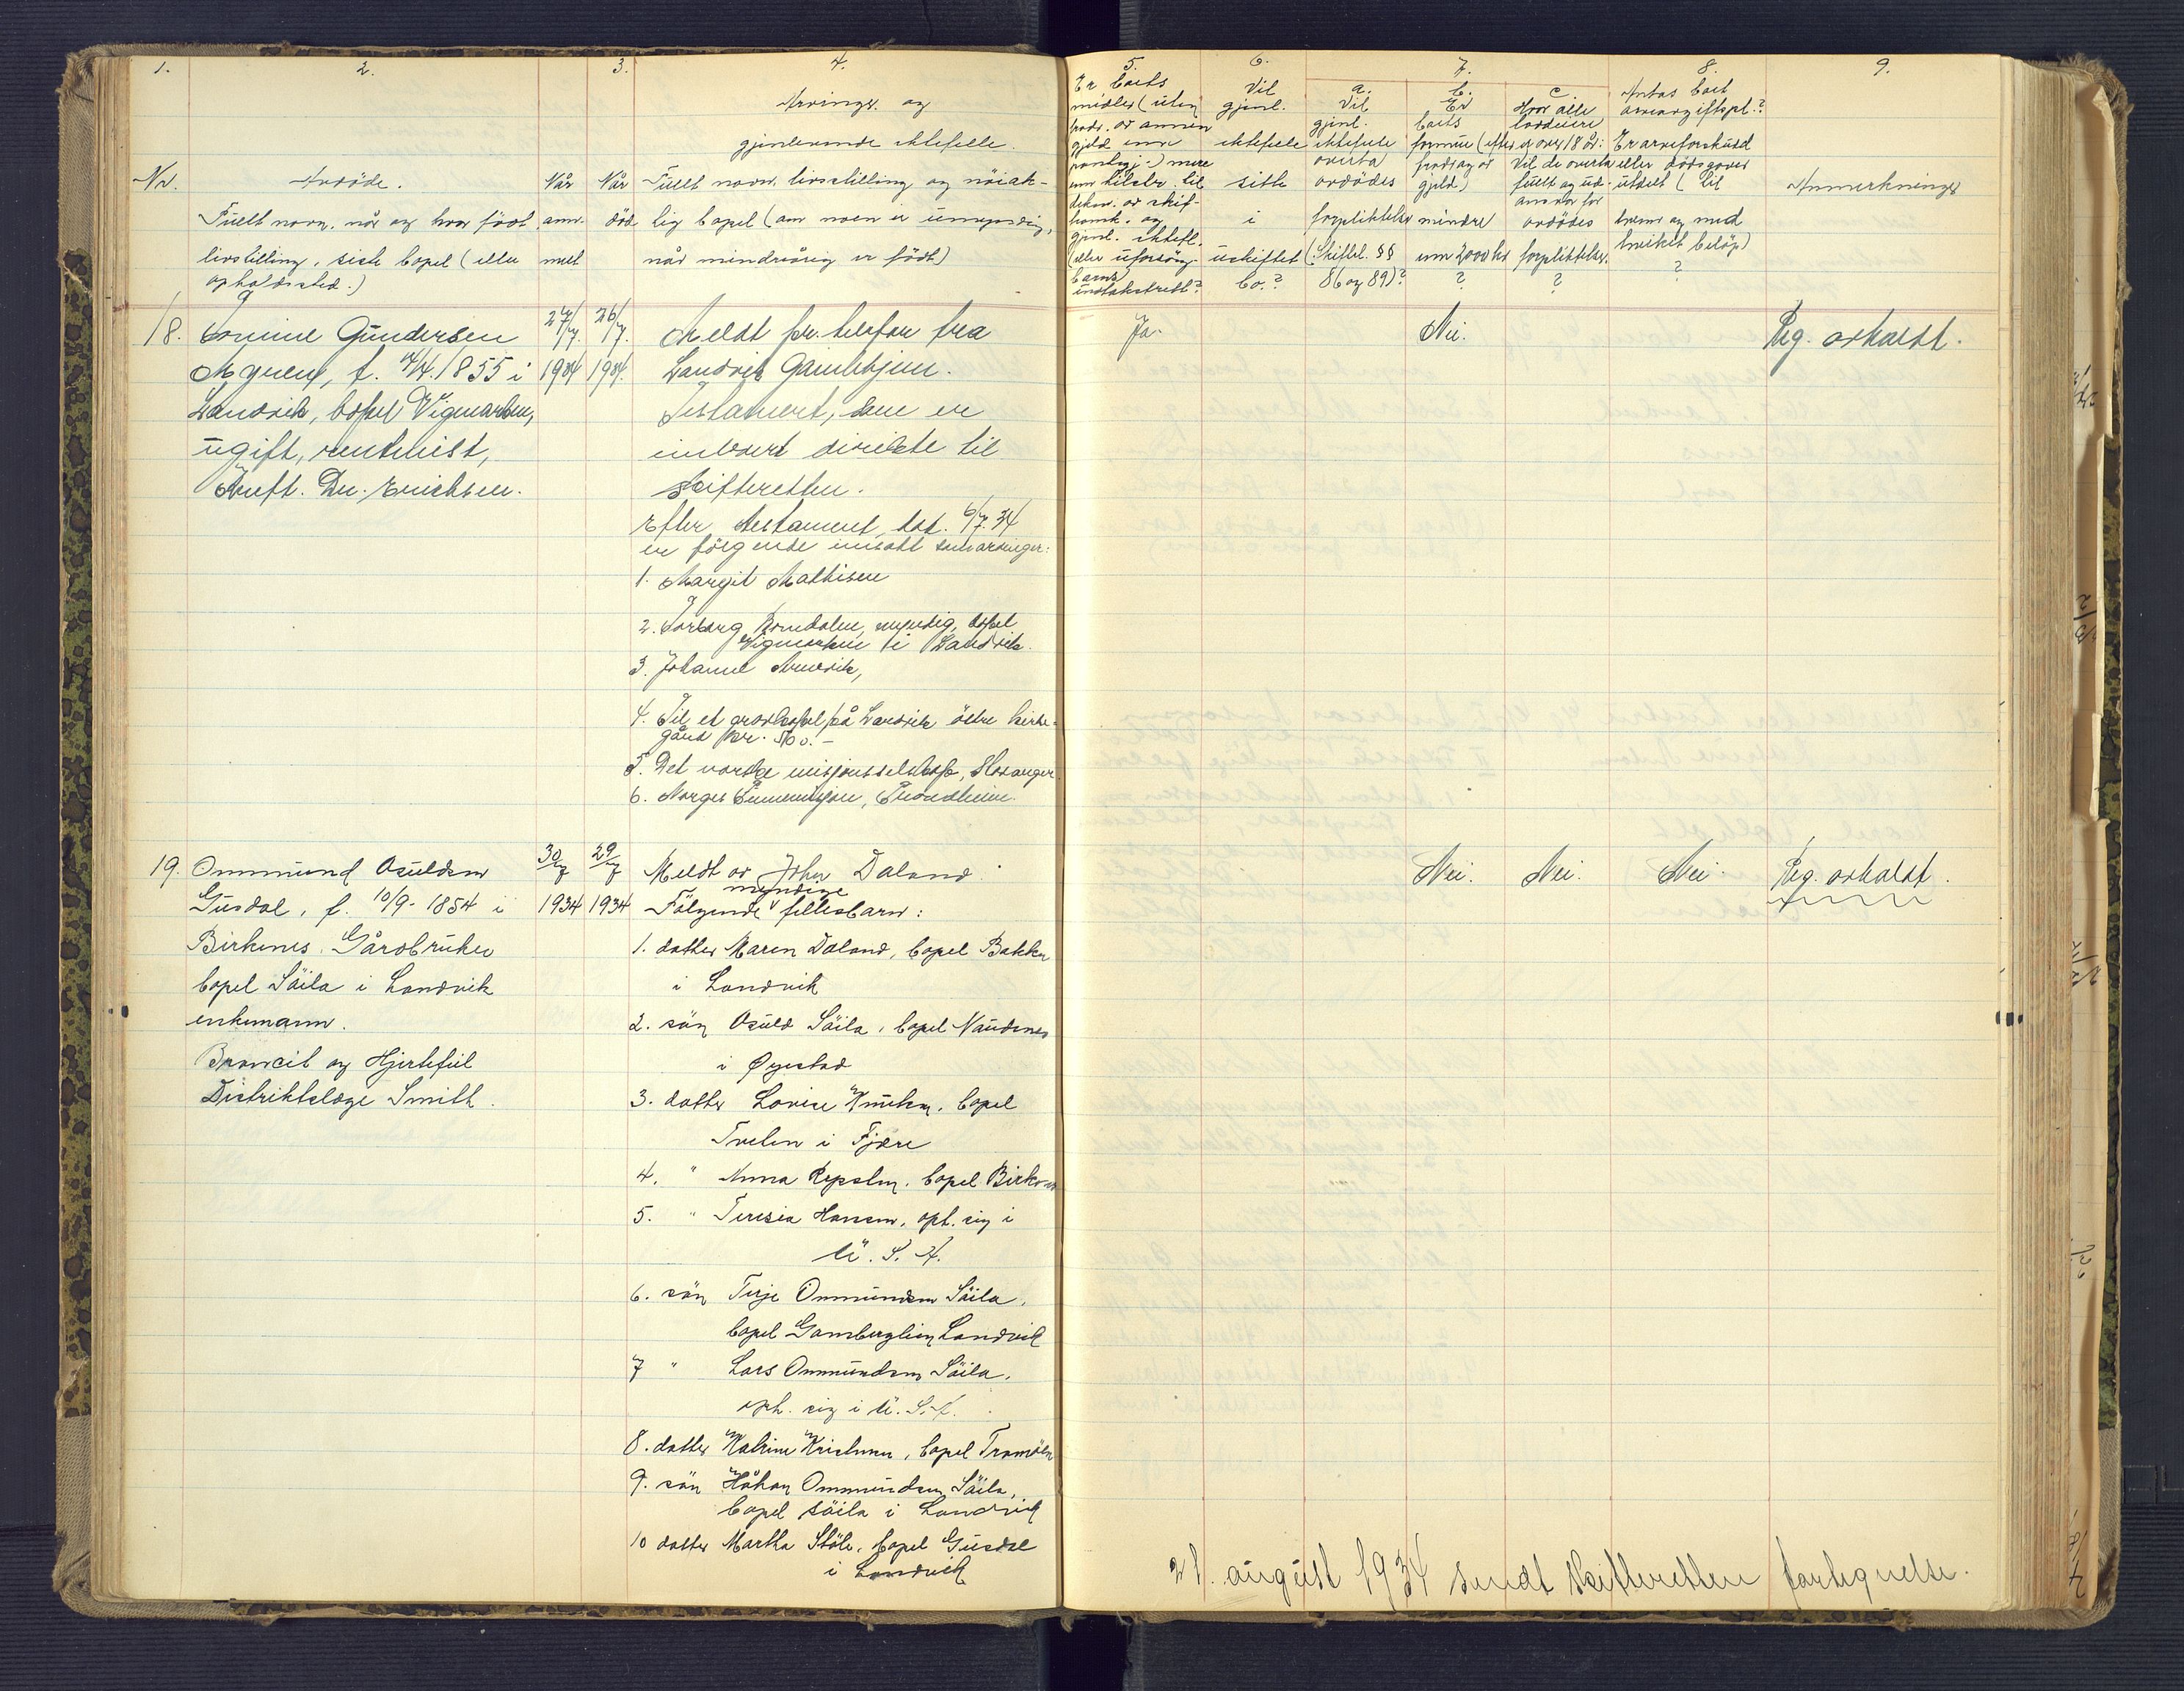 1.
2.
3.
4.
Arvinger og
gjenlevende ektefelle.
Nr.
Avdöde.
Når
Når
Fullt navn, livsstilling og nöiak-
Fullt navn, når og hvor född,
anm.
död
tig bopel (om noen er umyndig,
livsstilling, siste bopel (eller
meldt
når mindreårig er född)
opholdssted.)
5.
6.
7.
8.
9.
Er boets
midler (uten
fradr. av annen
gjeld enn
pantegj.) mere
enn tilstr. til
dekn. av skif-
teomk. og
gjenl. ektef.
(eller uforsörg.
barns)
undtaksrett?
Vil
gjenl.
ektefelle
sitte
i
uskiftet
bo.?
a.
Vil
gjenl.
ektefelle
overta
avdödes
forpliktelser
(Skiftel. §§
86 og 89)?
b.
Er
boets
formue (efter
fradrag av
gjeld)
mindre
enn 2000 kr
?
c.
Hvor alle
loddeiere
er over 18 år:
Vil de overta
fullt og ud
ansvar for
avdödes
forpliktelser.
?
Antas boet
arveavgiftspl.?
Er arveforskudd
eller dödsgaver
utdelt (til
hvem og med
hvilket belöp)
?
Anmerkninger
18.
Gundersen
27/7.
26/7.
Meldt pr. telefon fra
Ja.
Nei.
Reg. avholdt.
f. 1855 i
1934
1934.
Landvik Gamlehjem.
Landvik, bopel Vigmarken,
Testament, som er
ugift, rentenist,
innlevert direkte til
Skifteretten.
Efter testament dat. 6/7.34
er fölgende innsatt som arvinger:
1. Margit Mathisen
2. Torborg myndig, bopel
Vigmarken i Landvik.
3. Johanne
4. Til et gravkapel på Landvik östre kirke-
gård kr. 500.-
5. Det norske misjonsselskap, Stavanger
6. Norges Finnemisjon, Trondheim.
19.
Ommund Osuldsen
30/7
29/7
Meldt av John Daland.
Nei.
Nei.
Nei.
Reg. avholdt.
myndige
Gusdal, f. 10/9. 1854 i
1934
1934
Fölgende v fellesbarn:
Birkenes. Gårdbruker
1. datter Maren Daland, bopel Bakken
bopel Söila i Landvik
i Landvik
enkemann.
2. sön Osuld Söila, bopel Naudenes
Broncit og Hjertefeil
i Øyestad
Distriktslæge Smith.
3. datter Lovise Knutsen, bopel
Tveten i Fjære
4. " Anna Repslen, bopel Birkenes
5. " Teresia Hansen, oph. sig i
U. S. A.
6. sön Terje Ommundsen Söila,
bopel Landvik
7 " Lars Ommundsen Söila,
oph. sig i U. S. A.
8. datter Katrine Kristensen, bopel Tromöen
9. sön Håkon Ommundsen Söila,
bopel Söila i Landvik
10 datter Martha Stöle, bopel Gusdal
i Landvik
21. august 1934 sendt skifteretten fortegnelse.